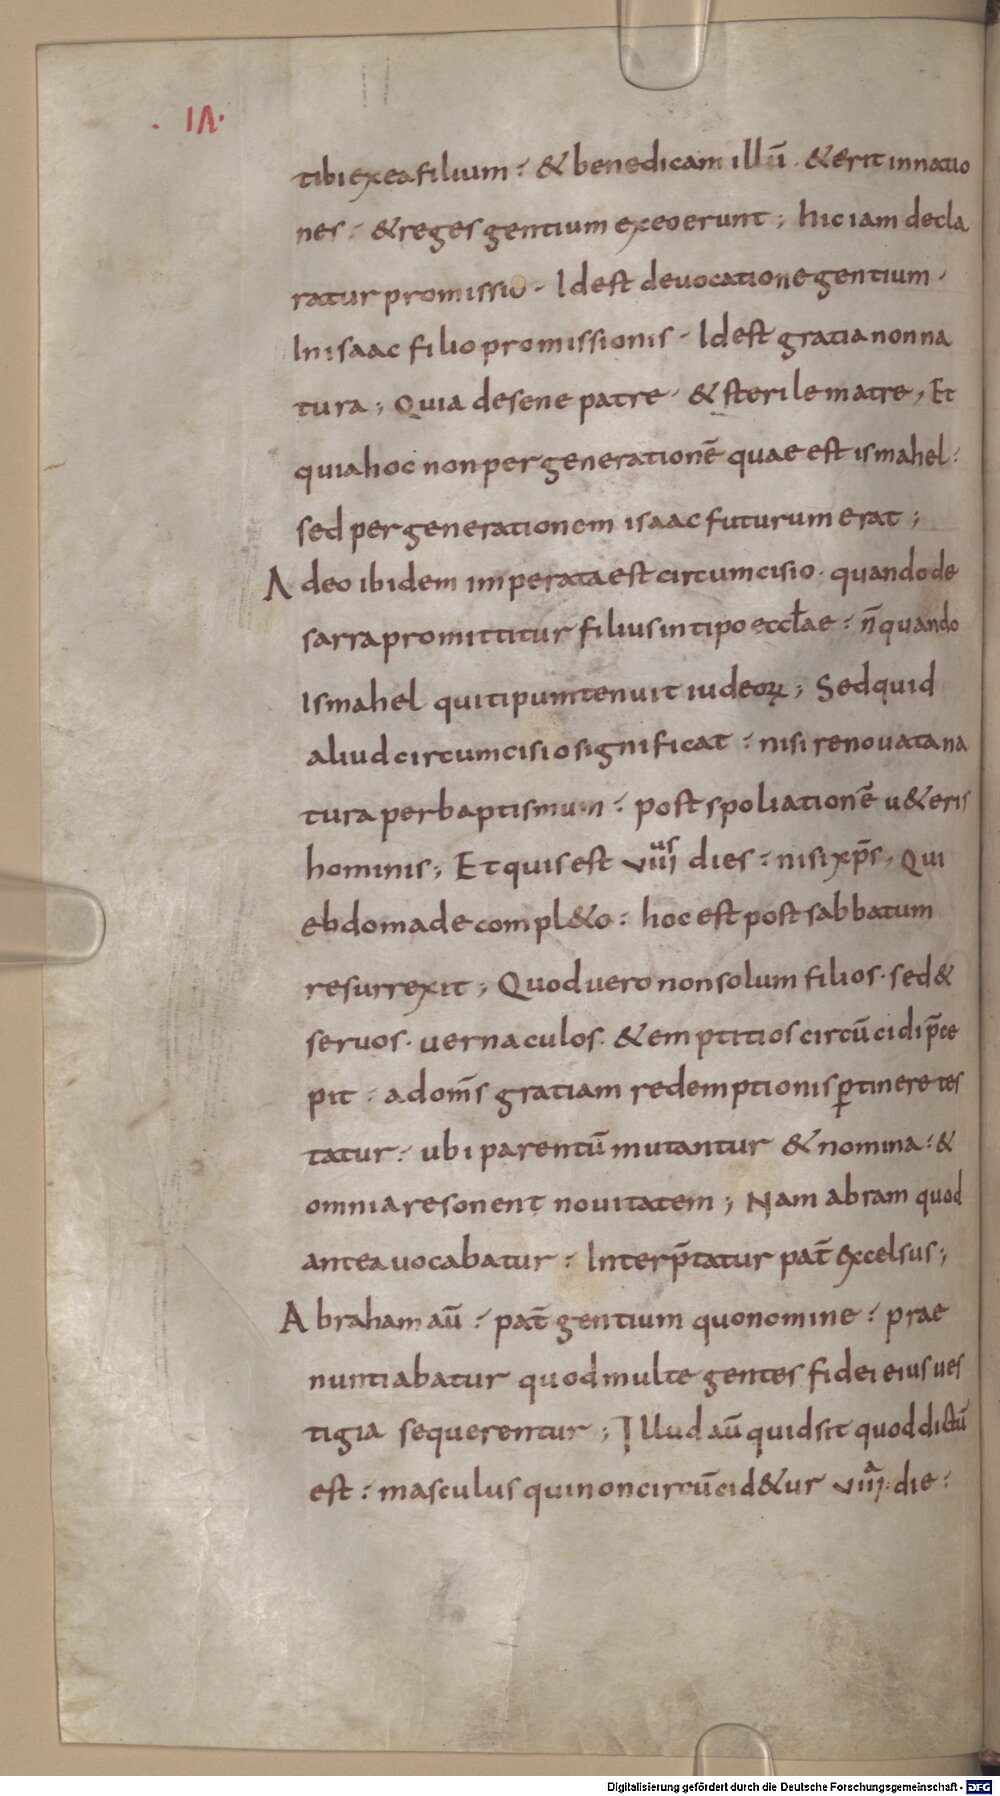 · IΛ·
tibi ex ea filium : & benedicam illū · & erit in natio
nes : & reges gentium ex eo erunt ; hic iam decla
ratur promissio · Id est de uocatione gentium ·
In isaac filio promissionis · Id est gratia non na
tura ; Quia de sene patre · & sterile matre ; Et
quia hoc non per generationē quae est ismahel :
sed per generationem isaac futurum erat ;
Adeo ibidem imperata est circumcisio · quando de
sarra promittitur filius in tipo eccłae : ñ quando
Ismahel qui tipum tenuit iudeoꝝ ; Sed quid
aliud circumcisio significat : nisi renouata na
tura per baptismum : post spoliationē u&eris
hominis ; Et quis est viiiᵘˢ dies : nisi xp̄s · Qui
ebdomade compl&o : hoc est post sabbatum
resurrexit ; Quod uero non solum filios · sed &
seruos · uernaculos · & emptitios circūcidi p̄ce
pit : ad om̄s gratiam redemptionis ꝑtinere tes
tatur : ubi parentū mutantur & nomina : &
omnia resonent nouitatem ; Nam abram quod
antea uocabatur : Interp̄tatur pat̄ excelsus ;
Abraham aū : pat̄ gentium quo nomine : prae
nuntiabatur quod multe gentes fidei eius ues
tigia sequerentur ; Illud aū quid sit quod dictū
est : masculus qui non circūcid&ur viiiᵃ · die :
Digitalisierung gefördert durch die Deutsche Forschungsgemeinschaft - DFG